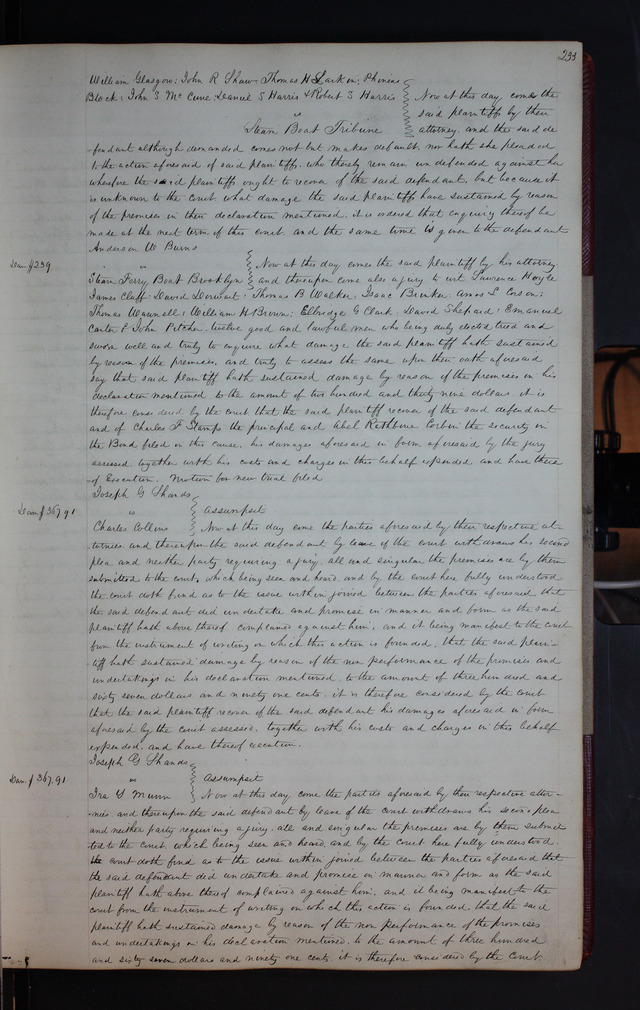 233
William Glasgow; John R Shaw; Thomas H Larkin; Phineas
Block; John S. Mc Cune; Daniel S Harris & Robert S Harris
Now at this day, comes the
said plaintiffs by their
vs
Steam Boat Tribune
attorney, and the said de
fendant although demanded comes not but makes default, nor hath she pleaded
to the action aforesaid of said plaintiffs, who thereby remain undefended against her
wherefore the said plaintiffs ought to recover of the said defendant, but because it
is unknown to the court what damage the said plaintiffs have sustained by reason
of the premises in their declaration mentioned, it is ordered that enquiry thereof be
made at the next term of this court and the same time is given to the defendant
Anderson W Burns
Dam $239
vs
Now at this day comes the said plaintiff by his attorney
Steam Ferry Boat Brooklyn
and thereupon come also a jury to wit, Lawrence Hoyle
James Cluff; David Dorwart; Thomas B Walker; Isaac Brinker; Amos L Corson;
Thomas Wannell; William H Brown; Elbridge G Clark; David Shepard; Emanuel
Carter & John Pitcher, twelve good and lawful men who being duly elected tried and
sworn well and truly to enquire what damage the said plaintiff hath sustained
by reason of the premises, and truly to assess the same upon their oath aforesaid
say that said plaintiff hath sustained damage by reason of the premises in his
declaration mentioned to the amount of two hundred and thirty nine dollars. it is
therefore considered by the court that the said plaintiff recover of the said defendant
and of Charles F Stamps the principal and Abel Rathbone Corbin the security in
the Bond filed in this cause, his damages aforesaid in form aforesaid by the jury
assessed together with his costs and charges in this behalf expended and have there
of Execution. Motion for new trial filed
Joseph G Shands
Dam $367.91
vs
Assumpsit
Charles Collins
Now at this day come the parties aforesaid by their respective at-
tornies and thereupon the said defendant by leave of the court withdraws his second
plea and neither party requiring a jury, all and singular the premises are by them
submitted to the court, which being seen and heard, and by the court here fully understood
the court doth find as to the issue within joined between the parties aforesaid that
the said defendant did undertake and promise in manner and form as the said
plaintiff hath above thereof complained against him, and it being manifest to the court
from the instrument of writing on which this action is founded, that the said plain-
tiff hath sustained damage by reason of the non performance of the promises and
undertakings in his declaration mentioned, to the amount of three hundred and
sixty seven dollars and ninety one cents. it is therefore considered by the court
that the said plaintiff recover of the said defendant his damages aforesaid in form
aforesaid by the court assessed, together with his costs and charges in this behalf
expended, and have thereof execution.
Joseph G Shands
Dam $367.91
vs
Assumpsit
Ira Y Munn
Now at this day come the parties aforesaid by their respective attor-
nies and thereupon the said defendant by leave of the court withdraws his second plea
and neither party requiring a jury, all and singular the premises are by them submit
ted to the court, which being seen and heard, and by the court here fully understood.
the court doth find as to the issue within joined between the parties aforesaid that
the said defendant did undertake and promise in manner and form as the said
plaintiff hath above thereof complained against him, and it being manifest to the
court from the instrument of writing on which this action is founded, that the said
plaintiff hath sustained damage by reason of the non performance of the promises
and undertakings in his declaration mentioned, to the amount of three hundred
and sixty seven dollars and ninety one cents. it is therefore considered by the court